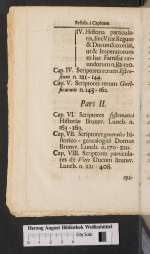 Relatio Capitum
IV. Historia particula-
ris, sive Vitæ Regum
& Ducum Saxoniæ,
ut & Imperatorum
ex hac Familia ori-
undorum n.
Cap. IV. Scriptores rerum
n. 121 - 144.
Cap. V. Scriptores rerum
n. 145 - 162.
Pars II.
Cap. VI. Scriptores systematici
Historiæ Brunsv. Luneb. n.
163 - 169.
Cap. VII. Scriptores generales hi-
storico - genealogici Domus
Brunsv. Luneb. n. 170 - 220.
Cap. VIII. Scriptores particula-
res de Vitis Ducum Brunsv.
Luneb. n. 221 - 408.
Herzog August Bibliothek Wolfenbüttel